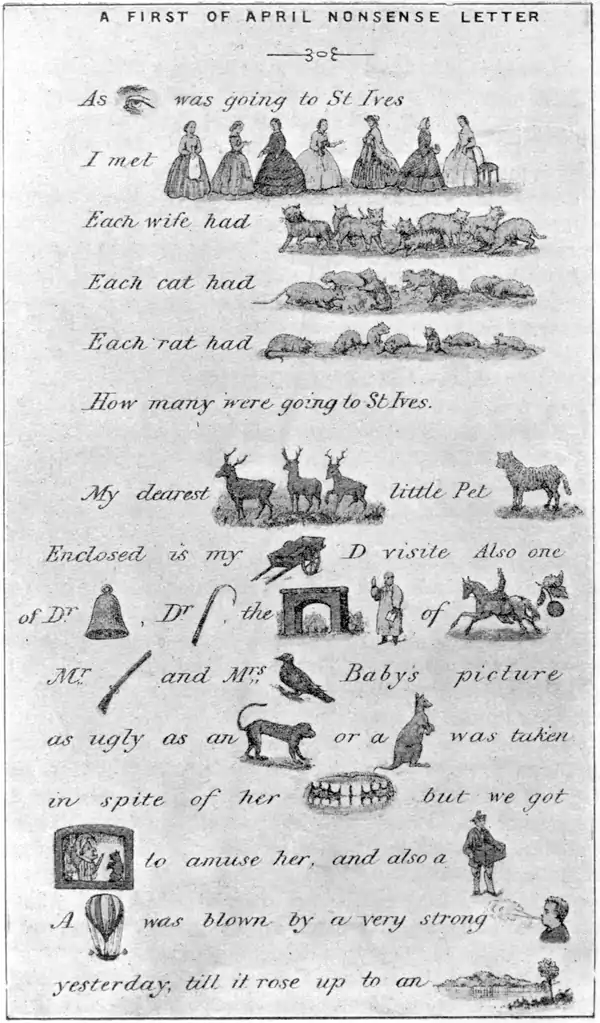 A FIRST OF APRIL NONSENSE LETTER
As was going to St Ives
I met
Each wife had
Each cat had
Each rat had
How many were going to St Ives.
My dearest little Pet
Enclosed is my D visite Also one
of Dr , Dr , the of
Mr and Mrs Baby's picture
as ugly as an or a was taken
in spite of her but we got
to amuse her, and also a
A was blown by a very strong
yesterday, till it rose up to an